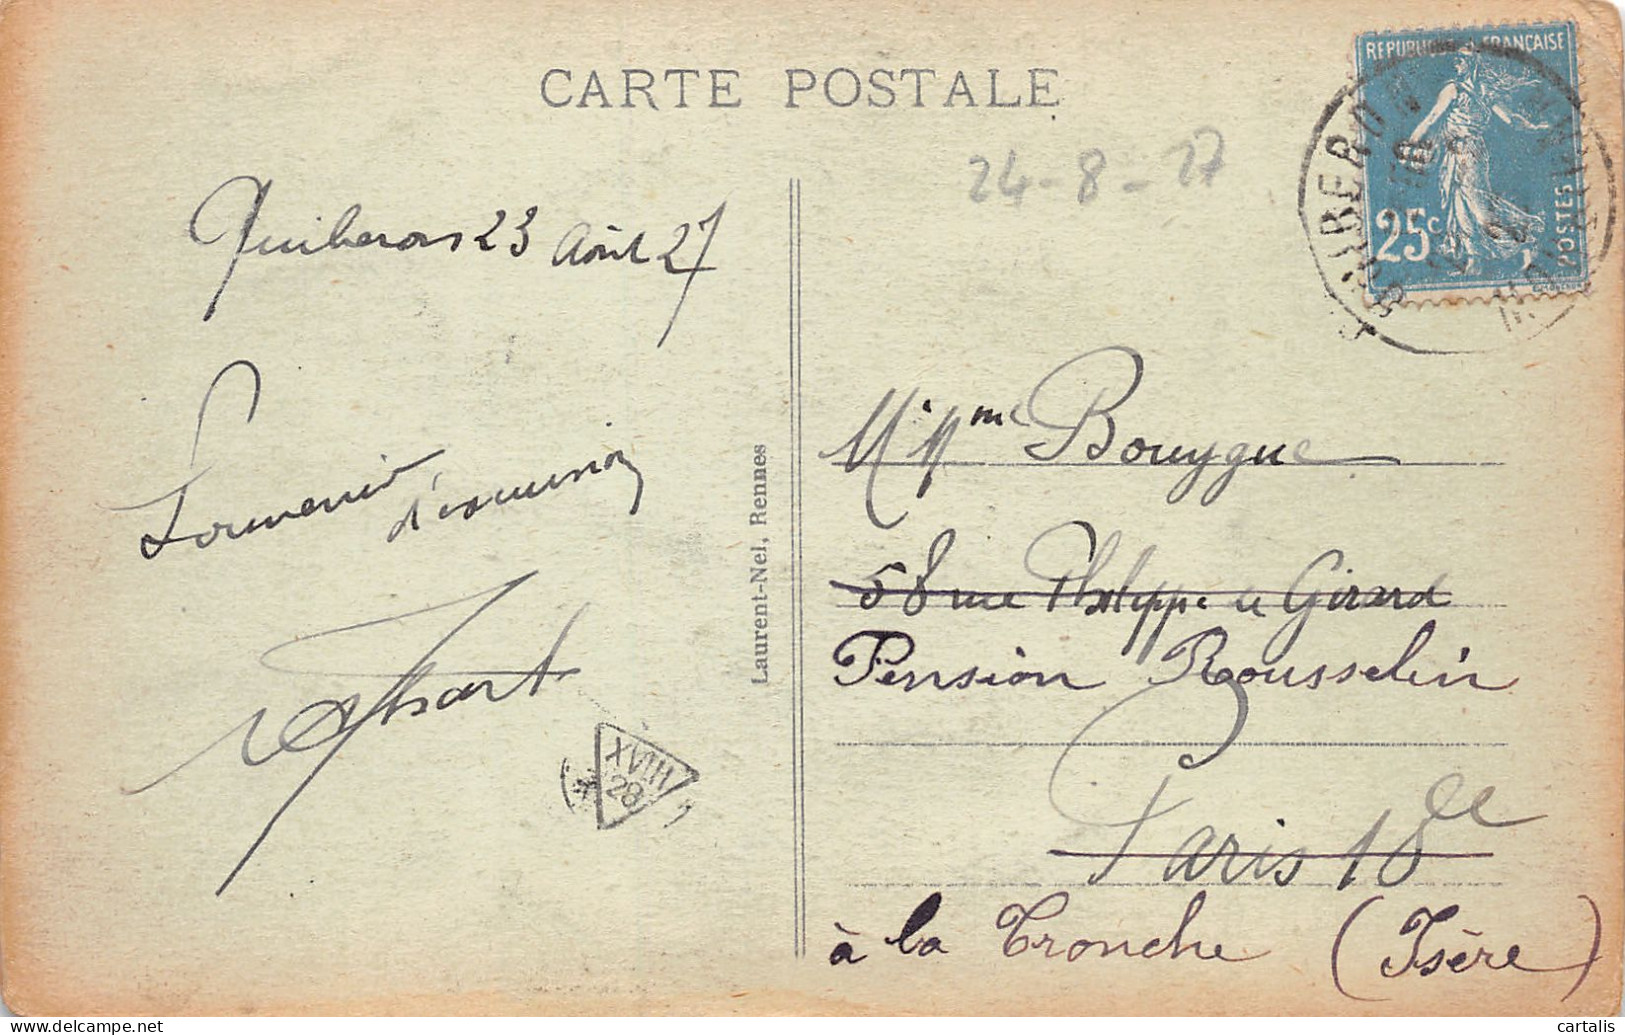 CARTE POSTALE
24-8-27
REPUBLIQUE FRANÇAISE
25c
POSTES
QUIBERON
Quiberon 23 Août 27
Souvenir
d'excursion
XVIII
28
Laurent-Nel, Rennes
M. Mme Bouygue
58 rue Philippe de Girard
Pension Rousselin
Paris 18e
à la Tronche (Isère)
delcampe.net
cartalis